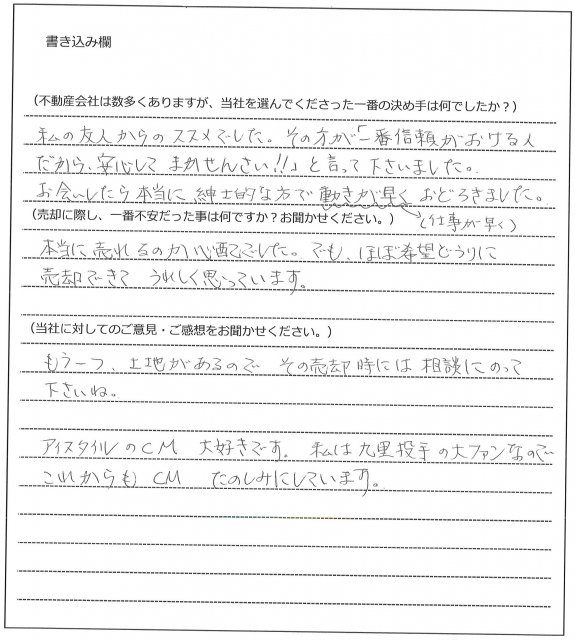 書き込み欄
(不動産会社は数多くありますが、当社を選んでくださった一番の決め手は何でしたか?)
私の友人からのススメでした。その方が「一番信頼がおける人
だから、安心して まかせんさい!!」と言って下さいました。
お会いしたら本当に 紳士的な方で 動きが早く おどろきました。
(売却に際し、一番不安だった事は何ですか?お聞かせください。)
(仕事が早く)
本当に売れるのか心配でした。でも、ほぼ希望どうりに
売却できて うれしく思っています。
(当社に対してのご意見・ご感想をお聞かせください。)
もう一つ、土地があるので その売却時には 相談にのって
下さいね。
アイスタイルのCM 大好きです。私は九里投手の大ファンなので
これからも CM たのしみにしています。